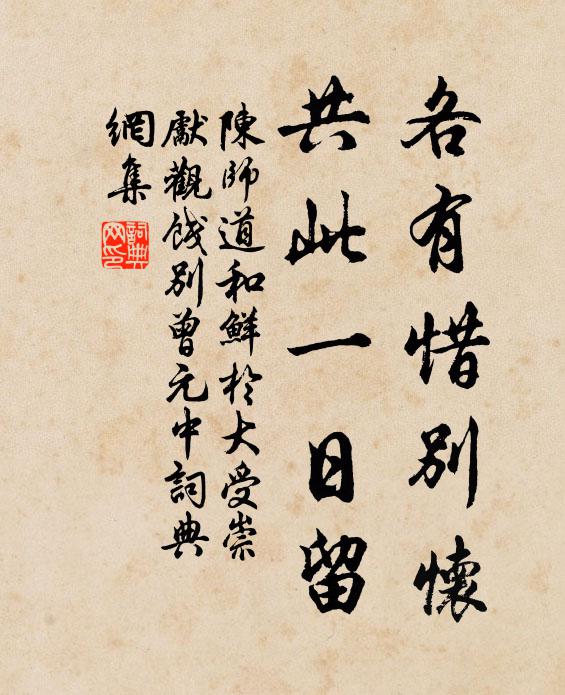 各有惜別懷
共此一日留
陳師道和鮮於大受崇
獻觀餞別曾元中詞典
網集
詞典
网印